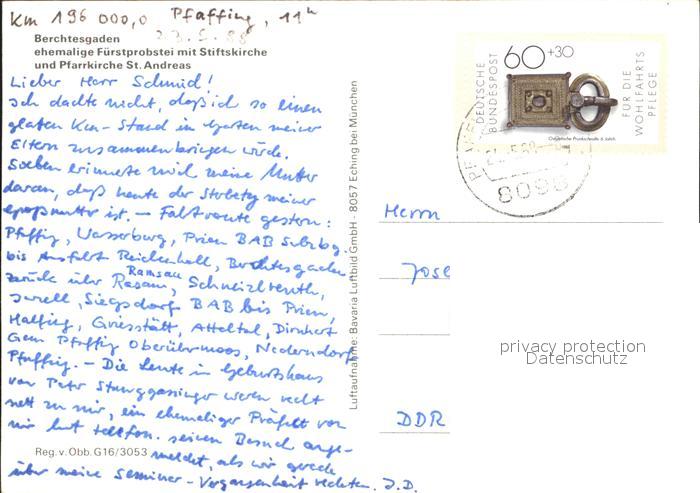 Km 196 000,0 Pfaffing, 11ʰ
23.5.88
Berchtesgaden
ehemalige Fürstprobstei mit Stiftskirche
und Pfarrkirche St. Andreas
Lieber Herr Schmid!
Ich dachte nicht, daß ich so einen
glatten Km-Stand im Garten meiner
Eltern zusammenbringen würde.
Soeben erinnerte mich meine Mutter
daran, daß heute der Sterbetag meiner
Großmutter ist. – Fahrtroute gestern:
Pfaffing, Wasserburg, Prien BAB Salzbg.
bis Ausfahrt Reichenhall, Berchtesgaden
zurück über Ramsau, Schneizlreuth,
Inzell, Siegsdorf BAB bis Prien,
Halfing, Griesstätt, Atteltal, Dirnhart
Gem Pfaffing Oberübermoos, Nederndorf
Pfaffing. – Die Leute im Geburtshaus
von Peter Stanggassinger waren recht
nett zu mir, ein ehemaliger Präfekt von
mir hat telefon. seinen Besuch ange-
meldet, als wir gerade
über meine Seminar-Vergangenheit redeten. J.D.
Reg. v. Obb. G16/3053
Luftaufnahme: Bavaria Luftbild GmbH - 8057 Eching bei München
DEUTSCHE BUNDESPOST
60+30
FÜR DIE WOHLFAHRTSPFLEGE
8098
Herrn
Jose
DDR
privacy protection
Datenschutz